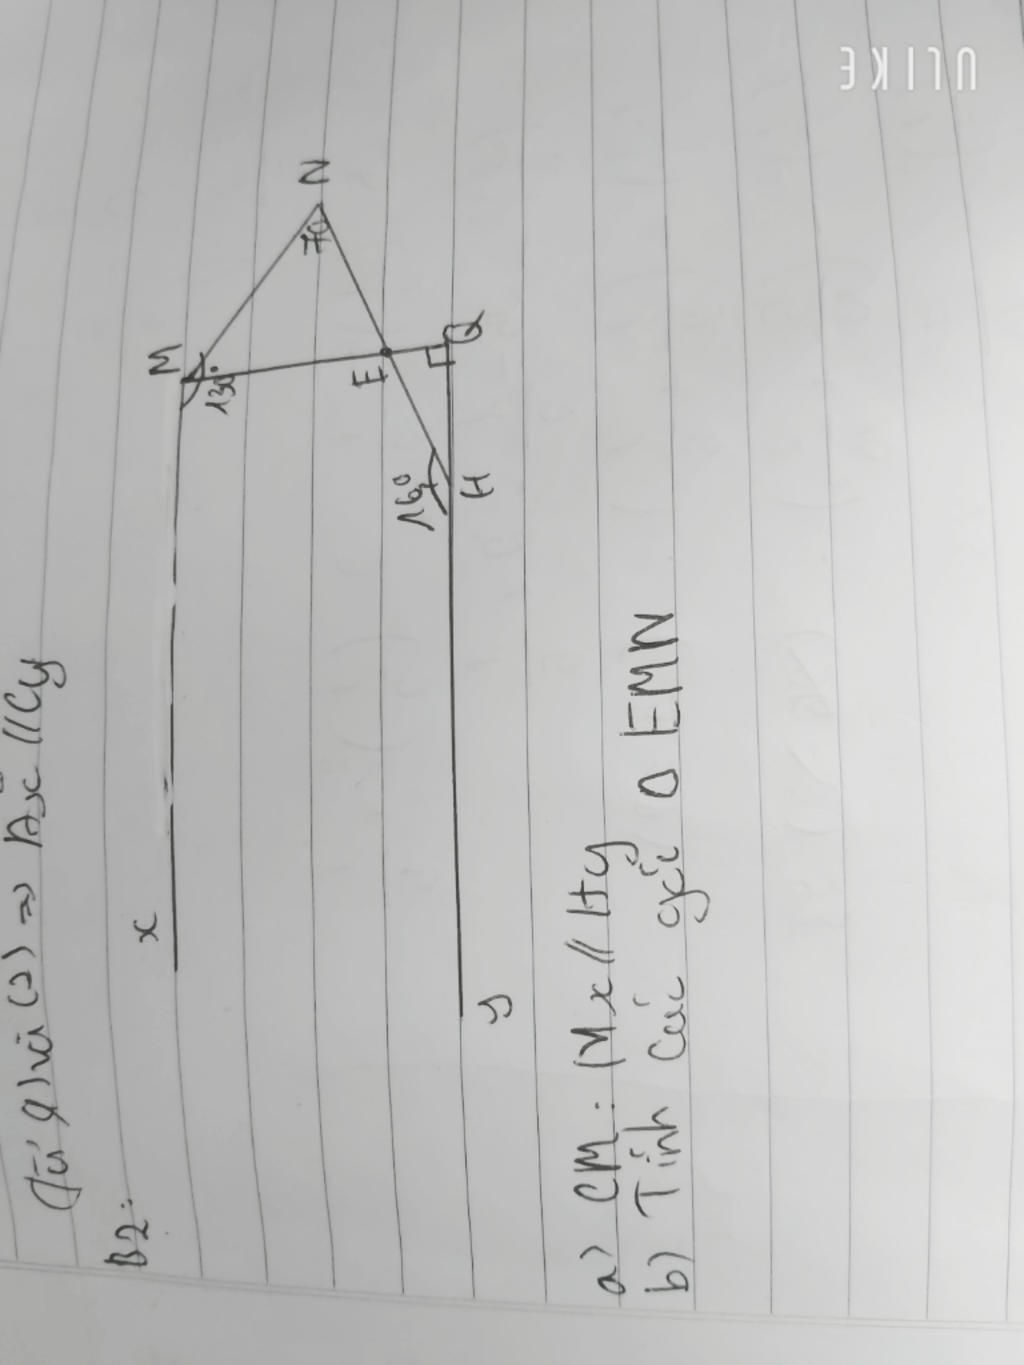 Từ (1) và (2) => Ax // Cy
B2:
x
M
130°
N
70
E
Q
160°
H
y
a) CM: Mx // Hy
b) Tính các góc Δ EMN
ULIKE